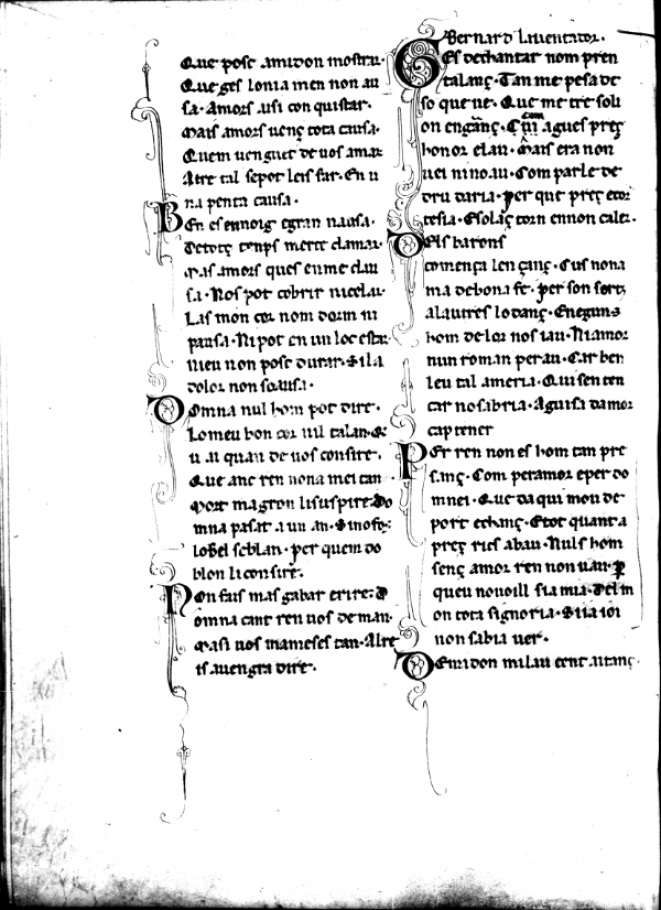 Que posc amidon mostrar.
Que ges lonia men non au
sa. Amors aisi conquistar.
Mais amors venç tota causa.
Quem venguet de vos amar
Atretal sepot leis far. En u
na penta causa.
Ben es ennoig e gran nausa.
Detotç temps merce clamar.
Mas amors ques en me clau
sa. Nos pot cobrir ni celar.
Las mon cor nom dorm ni
pausa. Ni pot en un loc estar.
Ni eu non posc durar. Si la
dolor non soausa.
Domna nul hom pot dire.
Lo meu bon cor nil talan. Q
u ai quan de vos consire.
Que anc ren non amei tan
Mort magron li suspire. Do
mna pasat a un an. Si no fos
lo bel seblan. per quem do
blon li consire.
Non fais mas gabar e rire. D
omna cant ren vos deman.
Mas i vos mameses tan. Altre
is avengra dire.
Bernard Liventator.
Ges de chantar nom pren
talanç. Tan me pesa de
so que ve. Que me tre soli
on en ganç. Com agues preç
honor e lau. Mais era non
vei ni no au. Com parle de
dru daria. per que preç e cor
tesia. E solaç torn en non caler.
Dels barons
comença lenganç. Cus non a
ma de bona fe. per son sortç
als autres lo danç. E neguns
hom de lor nos iau. Ni amor
nun roman per au. Car ben
leu tal ameria. Qui sen ten
car no sabria. A guisa damor
captener
Per ren non es hom tan pre
sanç. Com per amor e per do
mnei. Que daqui mou de
port e chanç. E tot quant a
preç rics abau. Nuls hom
senç amor ren non vau. per
queu no voill sia mia. Del m
on tota signoria. Si ia ioi
non sabia ver.
De midon mi lau cent aitanç.